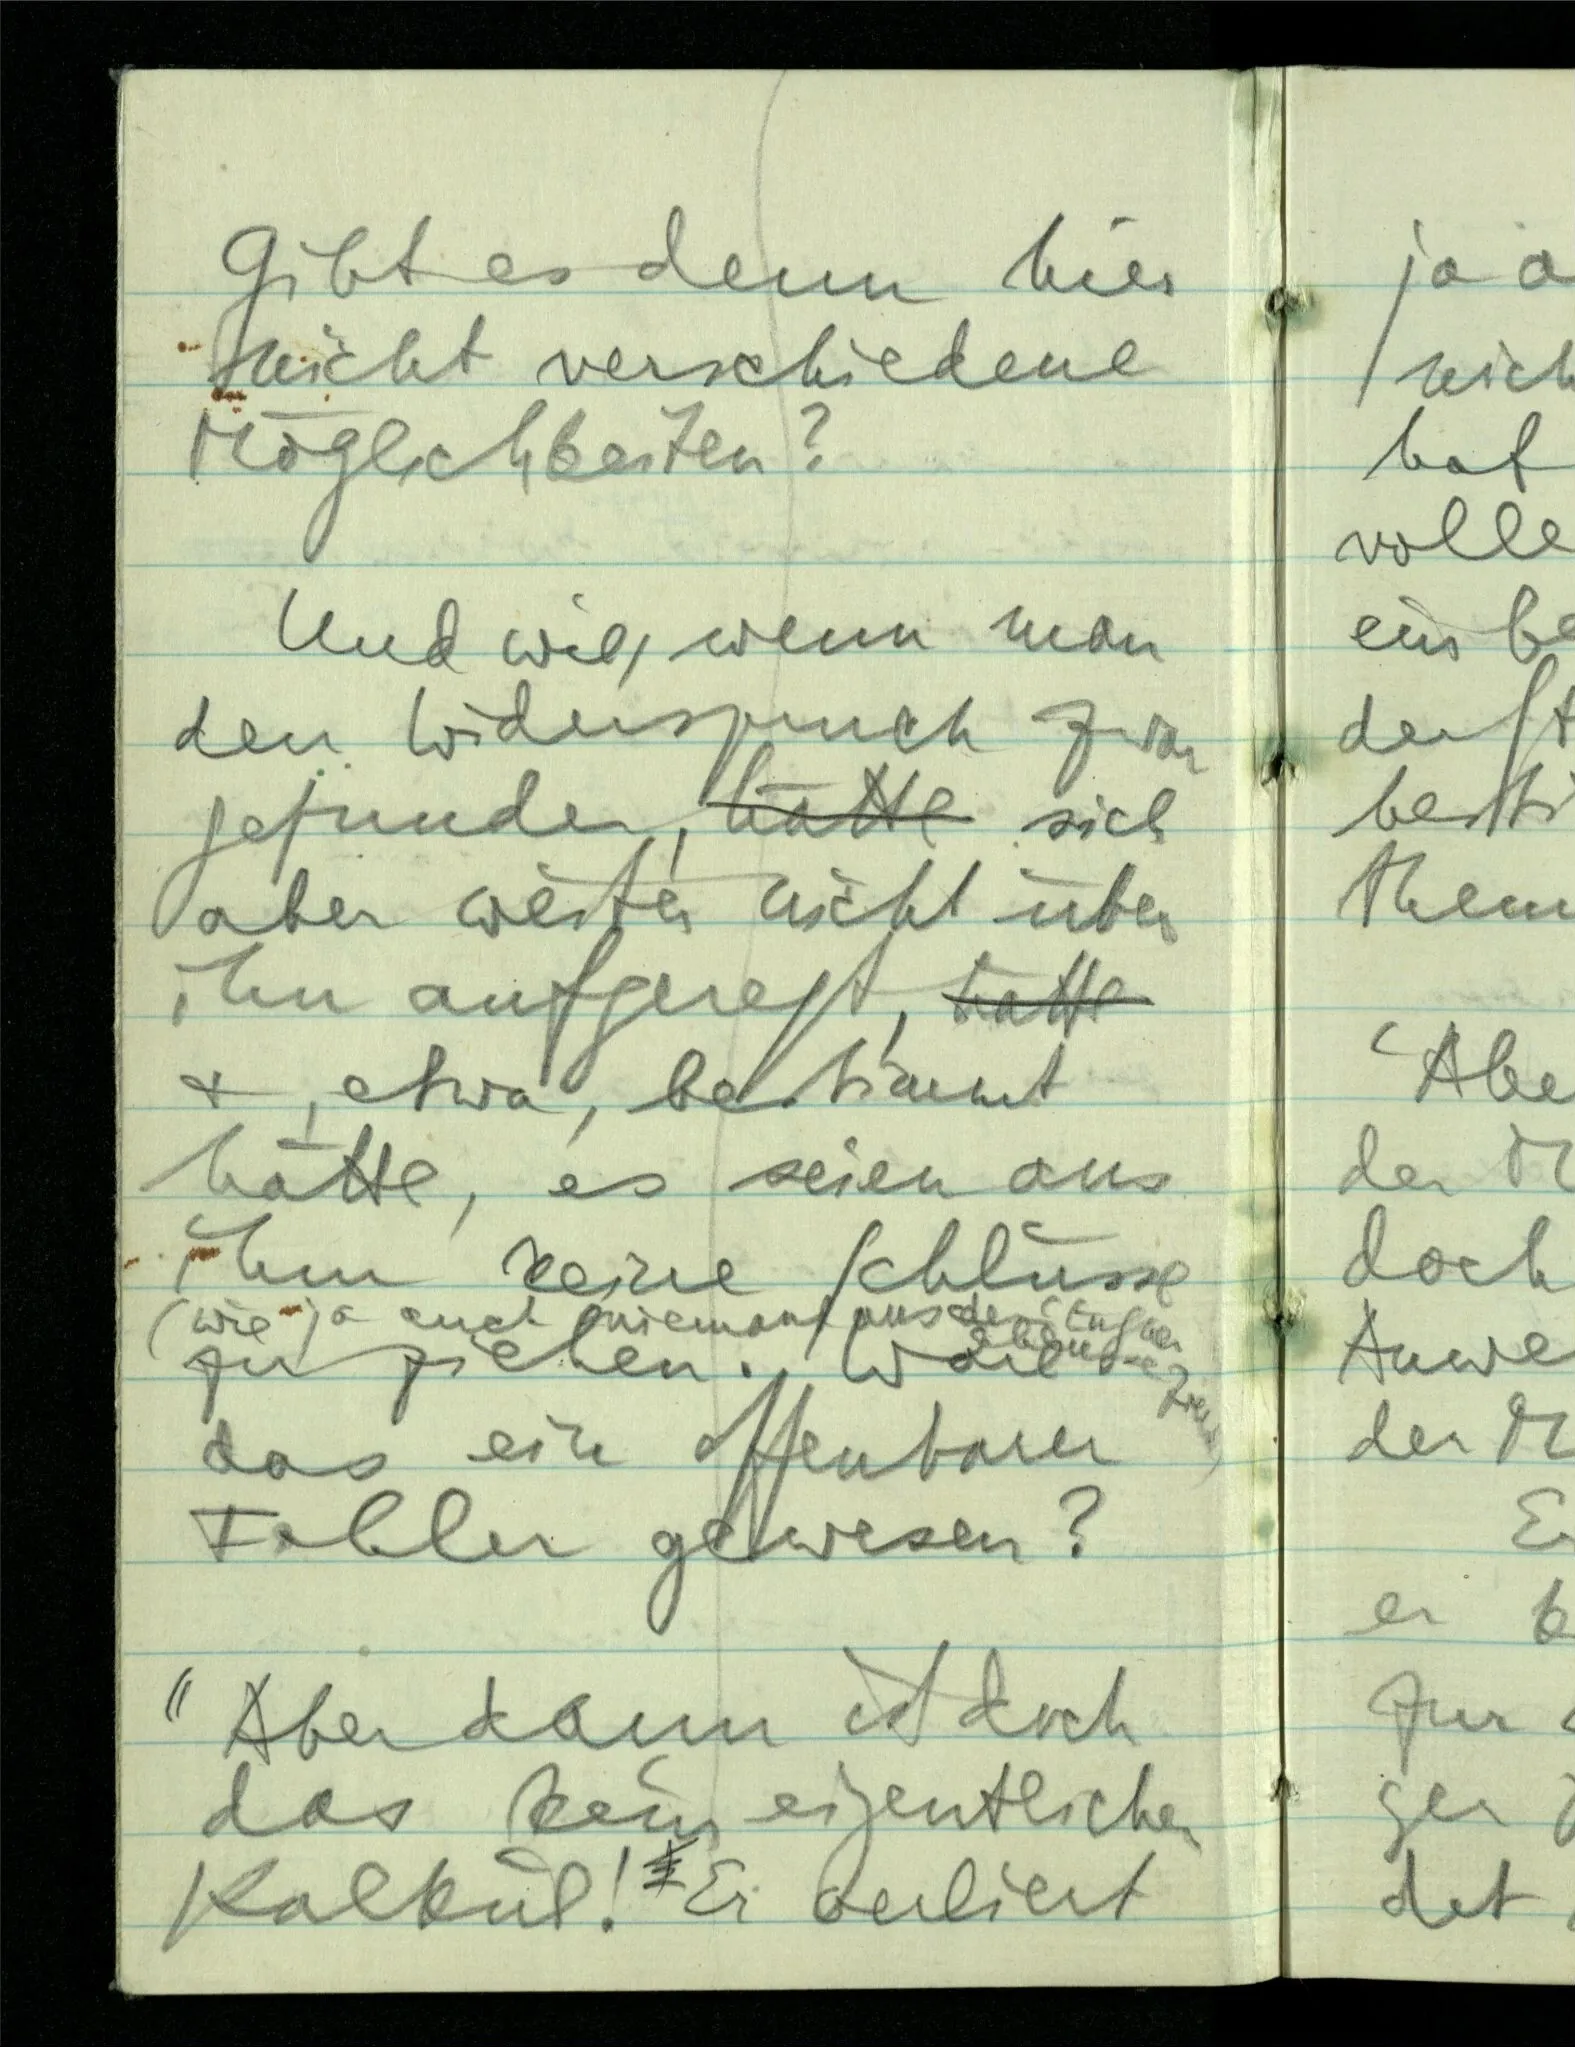 Gibt es denn hier
nicht verschiedene
Möglichkeiten?
Und wie, wenn man
den Widerspruch zwar
gefunden, hätte sich
aber weiter nicht über
ihn aufgeregt, hätte
+, etwa, bestimmt
hätte, es seien aus
ihm keine Schlüsse
(wie ja auch niemand aus dem Lügner
Schlüsse
zu ziehen. Wäre
zieht)
das ein offenbarer
Fehler gewesen?
"Aber dann ist doch
das kein eigentlicher
Kalkül! Er verliert
ja a
nich
hat
volle
ein be
der St
besti
them
"Abe
der M
doch
Anwe
der M
Er
er k
zur
ger
det